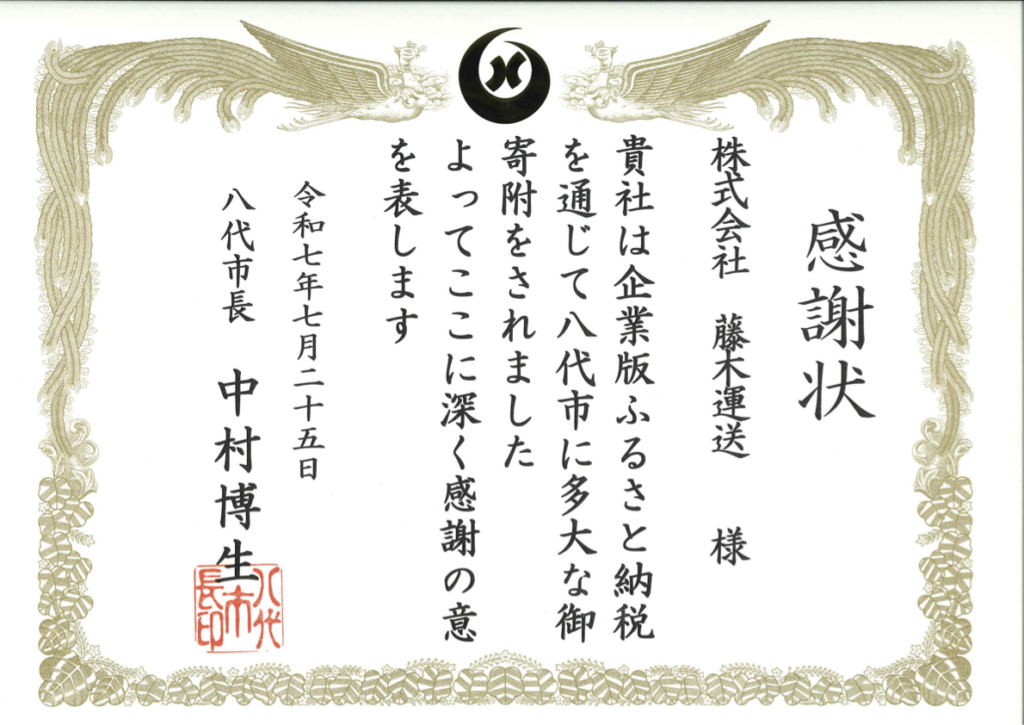 感謝状
株式会社 藤木運送 様
貴社は企業版ふるさと納税
を通じて八代市に多大な御
寄附をされました
よってここに深く感謝の意
を表します
令和七年七月二十五日
八代市長 中村博生
八代
市
長印